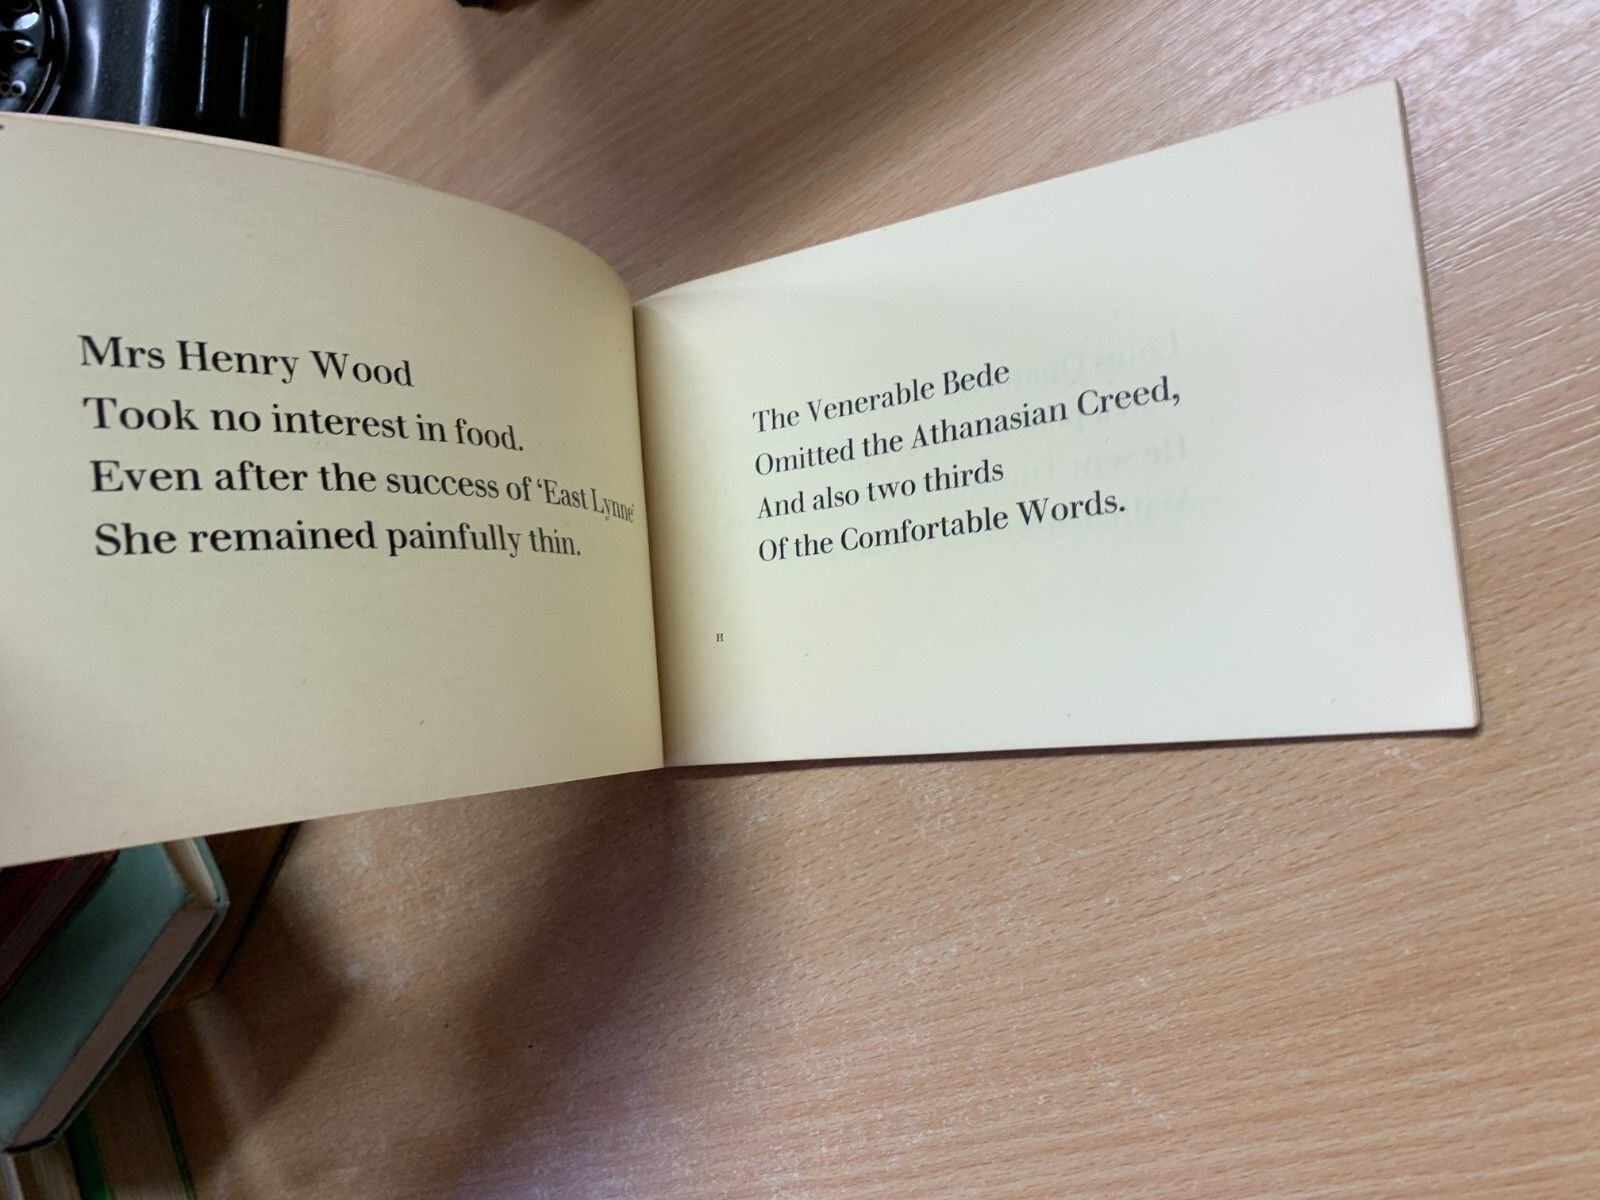 Mrs Henry Wood
Took no interest in food.
Even after the success of 'East Lynne'
She remained painfully thin.
The Venerable Bede
Omitted the Athanasian Creed,
And also two thirds
Of the Comfortable Words.
H